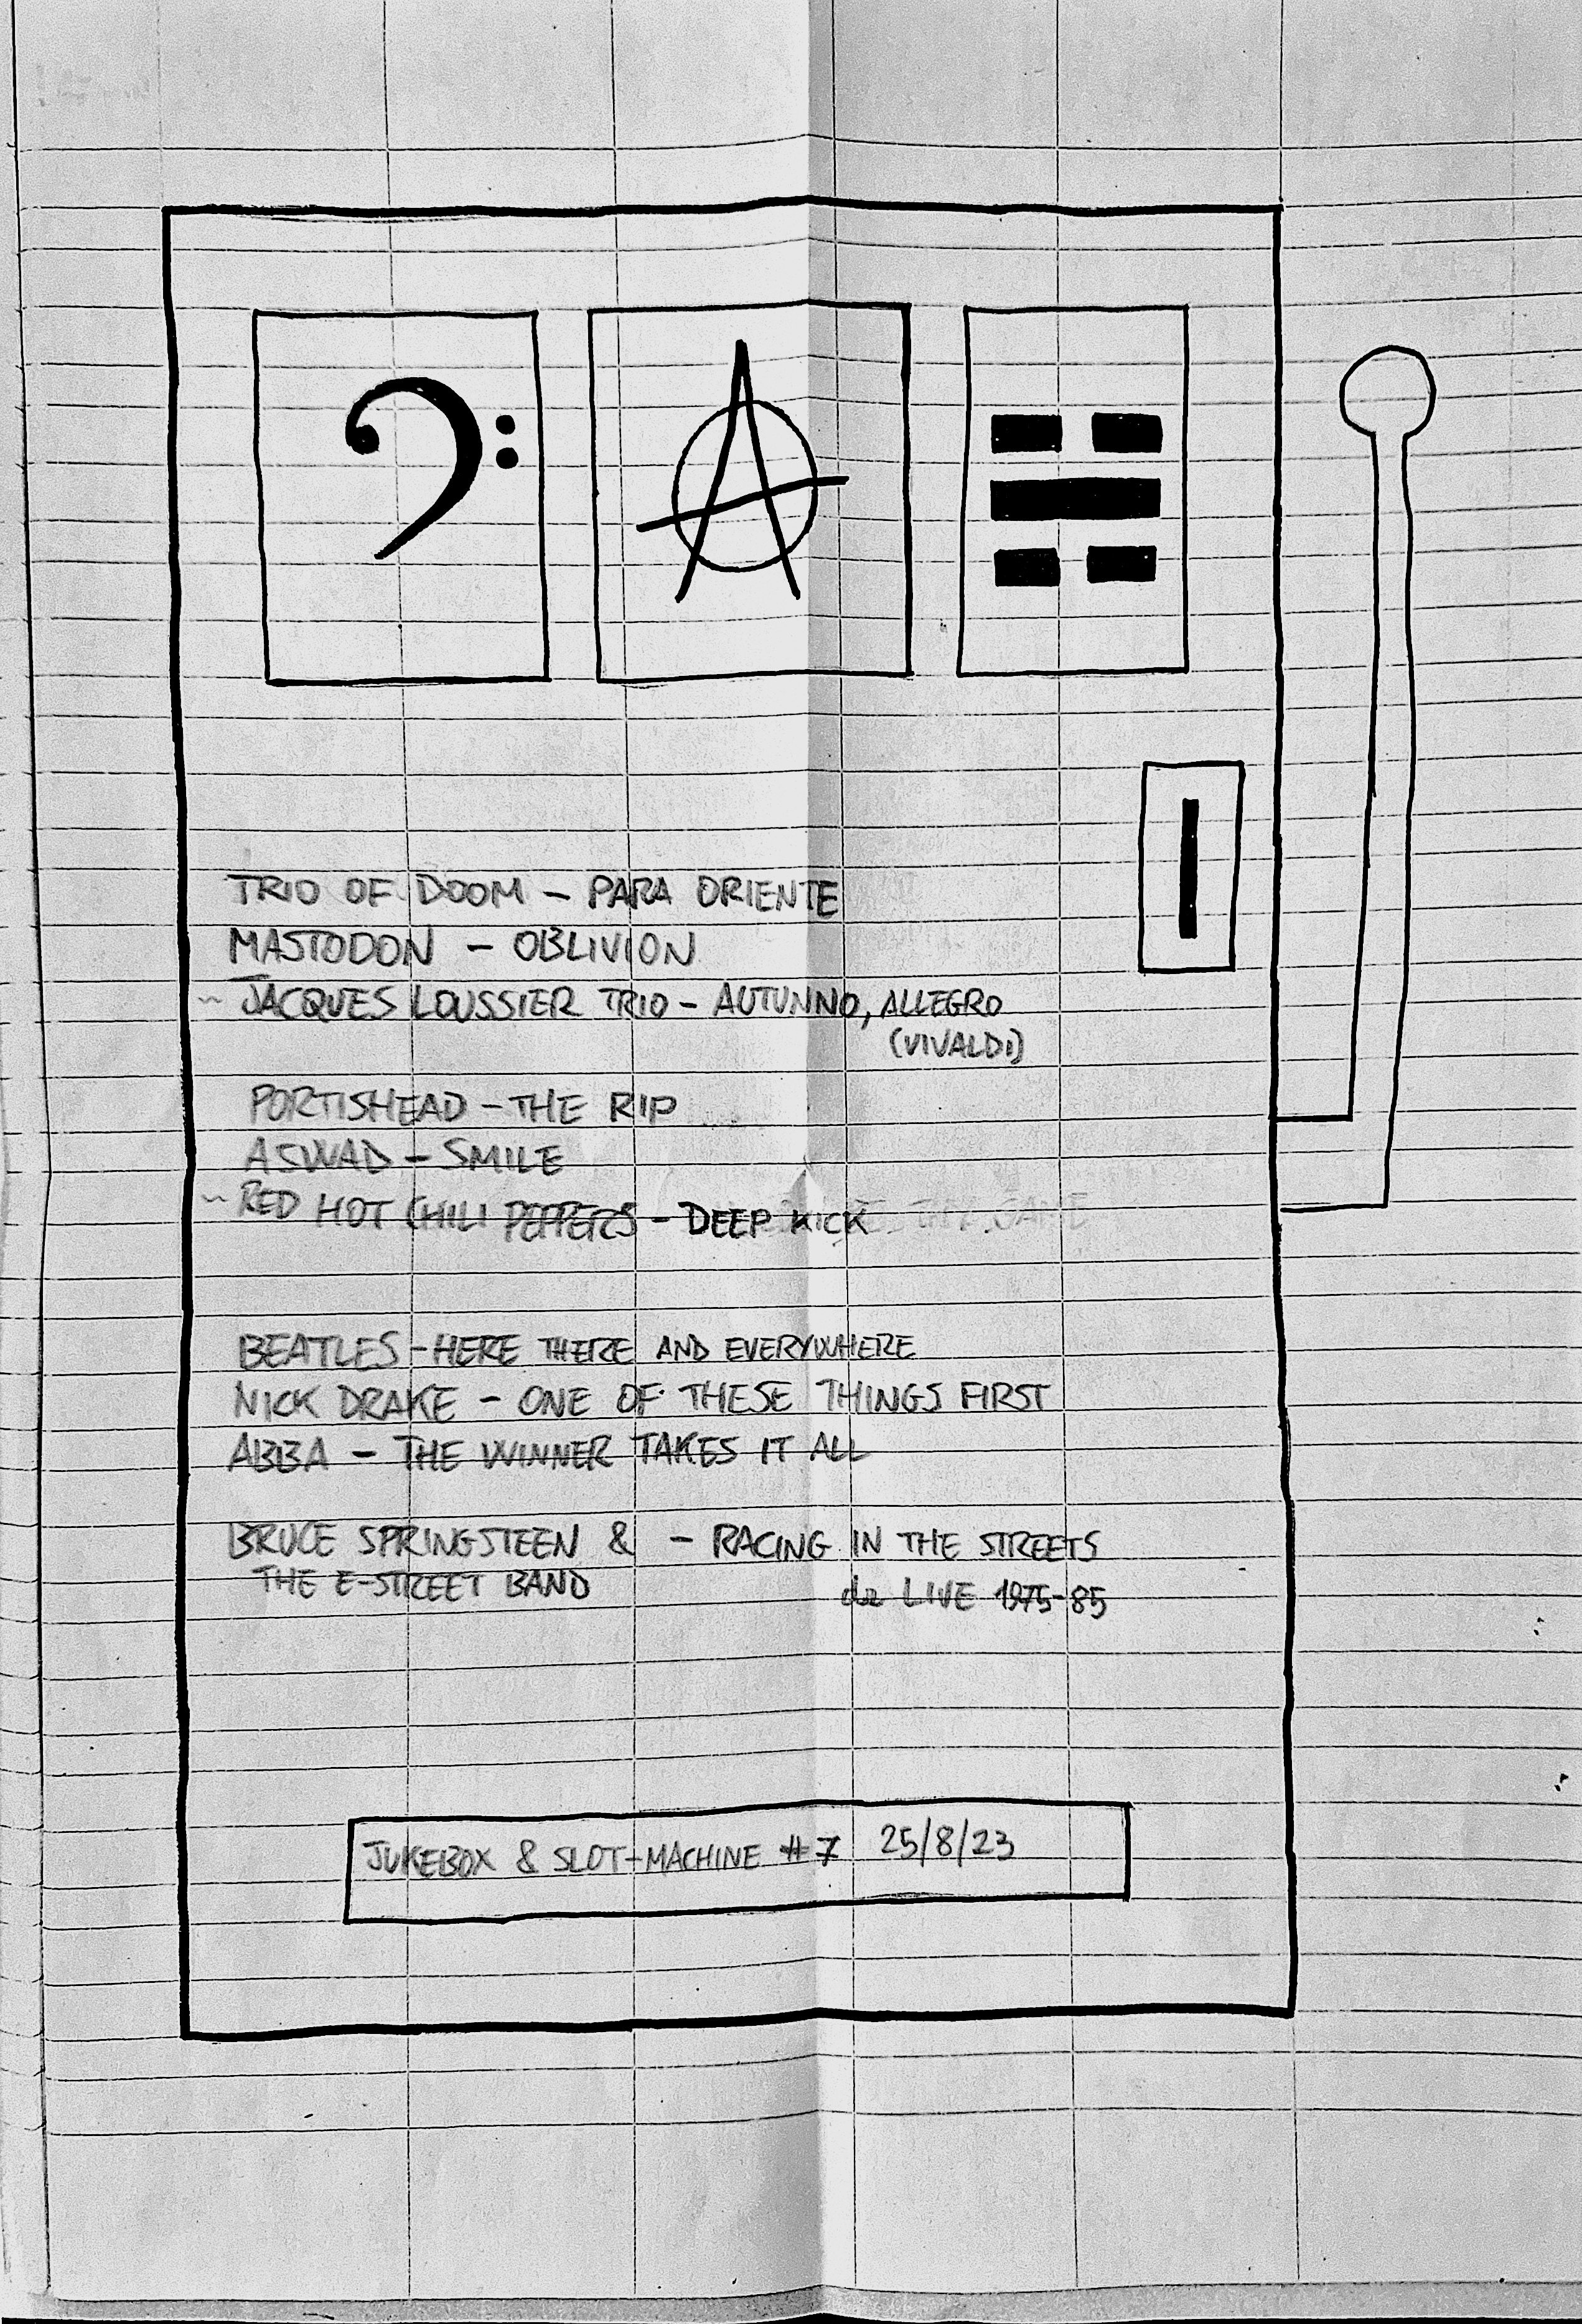 TRIO OF DOOM – PARA ORIENTE
MASTODON – OBLIVION
~ JACQUES LOUSSIER TRIO – AUTUNNO, ALLEGRO
(VIVALDI)
PORTISHEAD – THE RIP
ASWAD – SMILE
~ RED HOT CHILI PEPPERS – DEEP KICK
BEATLES – HERE THERE AND EVERYWHERE
NICK DRAKE – ONE OF THESE THINGS FIRST
ABBA – THE WINNER TAKES IT ALL
BRUCE SPRINGSTEEN & – RACING IN THE STREETS
THE E-STREET BAND da LIVE 1975-85
JUKEBOX & SLOT-MACHINE #7 25/8/23